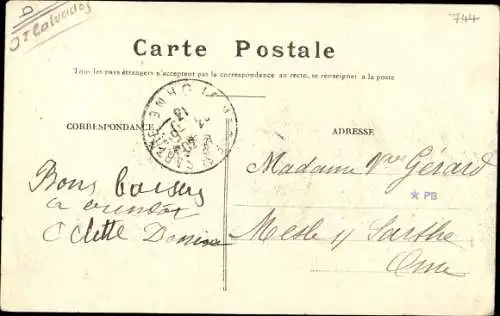 b
Calvados
744
Carte Postale
Tous les pays étrangers n'acceptent pas la correspondance au recto, se renseigner à la poste
CORRESPONDANCE
ADRESSE
Bons baisers
Odette
Madame Vve Gérard
PB
Mesle s/ Sarthe
Orne